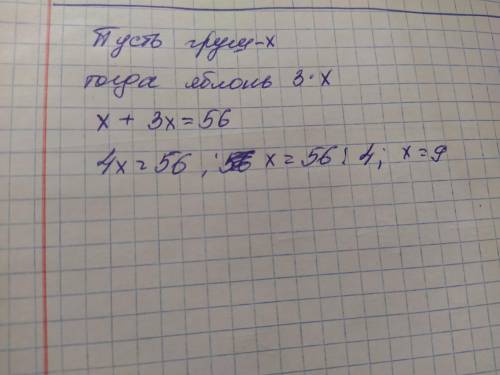 Пусть груш-х
тогда яблонь 3·х
х + 3х = 56
4х = 56 ; х = 56 : 4 ; х = 9